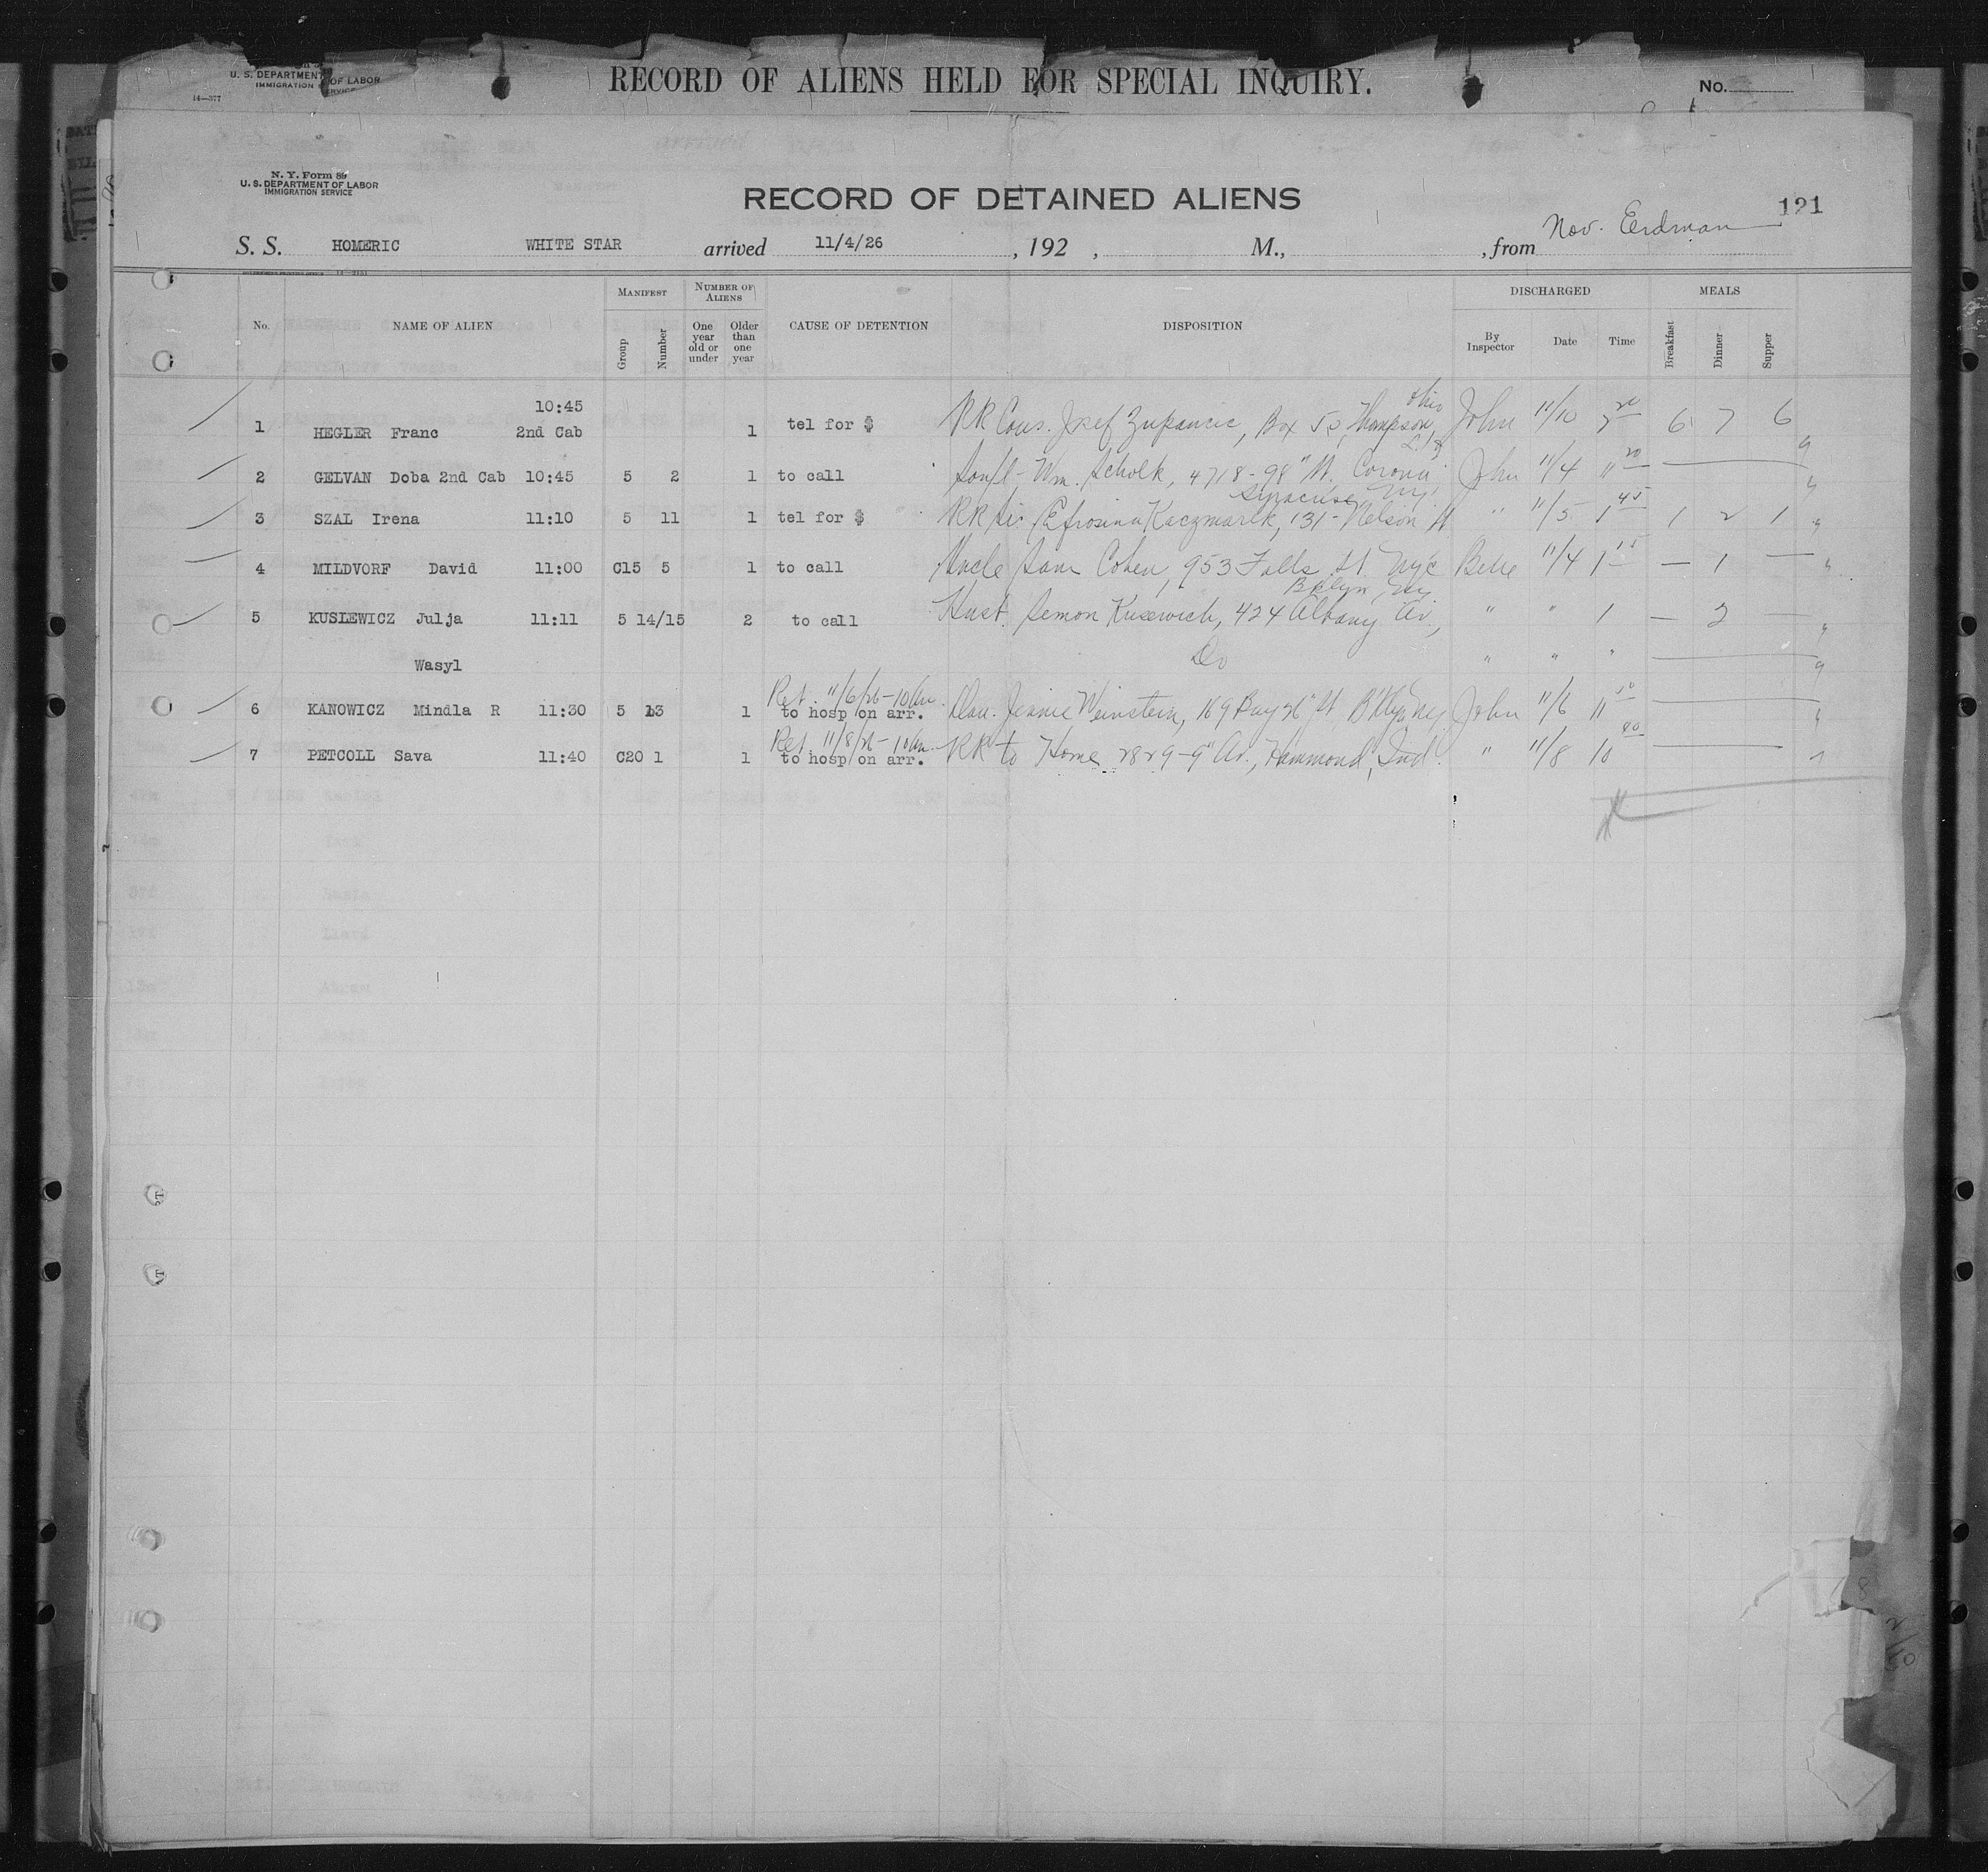 U. S. DEPARTMENT OF LABOR
IMMIGRATION SERVICE
14—377
RECORD OF ALIENS HELD FOR SPECIAL INQUIRY.
No.
N. Y. Form 89
U. S. DEPARTMENT OF LABOR
IMMIGRATION SERVICE
RECORD OF DETAINED ALIENS
121
S. S. HOMERIC WHITE STAR arrived 11/4/26 , 192 , M., , from Nov. Erdman
No. NAME OF ALIEN MANIFEST Group Number NUMBER OF ALIENS One year old or under Older than one year CAUSE OF DETENTION DISPOSITION DISCHARGED By Inspector Date Time MEALS Breakfast Dinner Supper
10:45 Ohio
1 HEGLER Franc 2nd Cab 1 tel for $ RR Cous. Josef Zupancic, Box 50, Thompson, John 11/10 7 20 6 7 6
L.I.
2 GELVAN Doba 2nd Cab 10:45 5 2 1 to call Wm. Scholk, 4718-98" St. Corona John 11/4 11 20
Syracuse NY
3 SZAL Irena 11:10 5 11 1 tel for $ RR si: Efrosina Kaczmarek, 131-Nelson St " 11/5 1 45 1 2 1
4 MILDVORF David 11:00 C15 5 1 to call Uncle Sam Cohen, 953 Falls St NYC 11/4 1 15 — 1 —
Bklyn, NY
5 KUSIEWICZ Julja 11:11 5 14/15 2 to call Husb. Semon Kusewich, 424 Albany Av., " " 1 — 2 —
Wasyl Do " " "
Ret. 11/6/26-10 Am.
6 KANOWICZ Mindla R 11:30 5 13 1 to hosp on arr. Dau. Jennie Weinstein, 169 Bay 26" St B'klyn NY John 11/6 11
Ret. 11/8/26-10 Am.
7 PETCOLL Sava 11:40 C20 1 1 to hosp on arr. RR to Home 2829-9" Av., Hammond, Ind. " 11/8 10